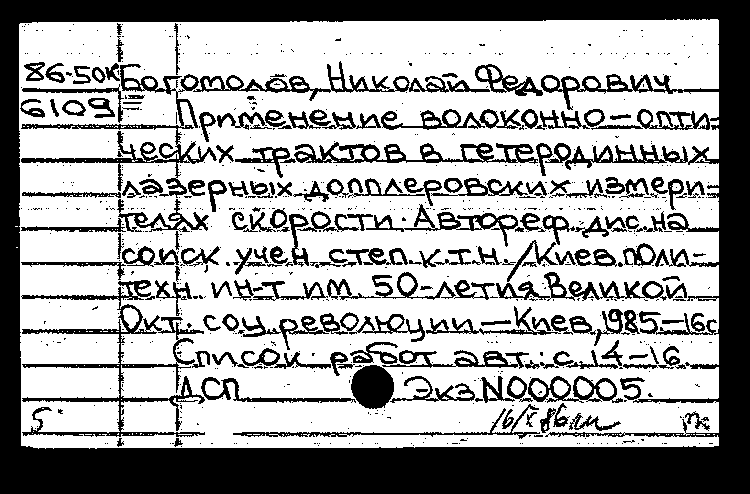 86-50к Богомолов, Николай Федорович
6109 Применение волоконно-опти-
ческих трактов в гетеродинных
лазерных допплеровских измери-
телях скорости. Автореф. дис. на
соиск. учен. степ. к.т.н. /Киев. поли-
техн. ин-т им. 50-летия Великой
Окт. соц. революции.—Киев, 1985.—16с
Список работ авт.: с. 14-16.
ДСП Экз N000005.
5 16/X 86